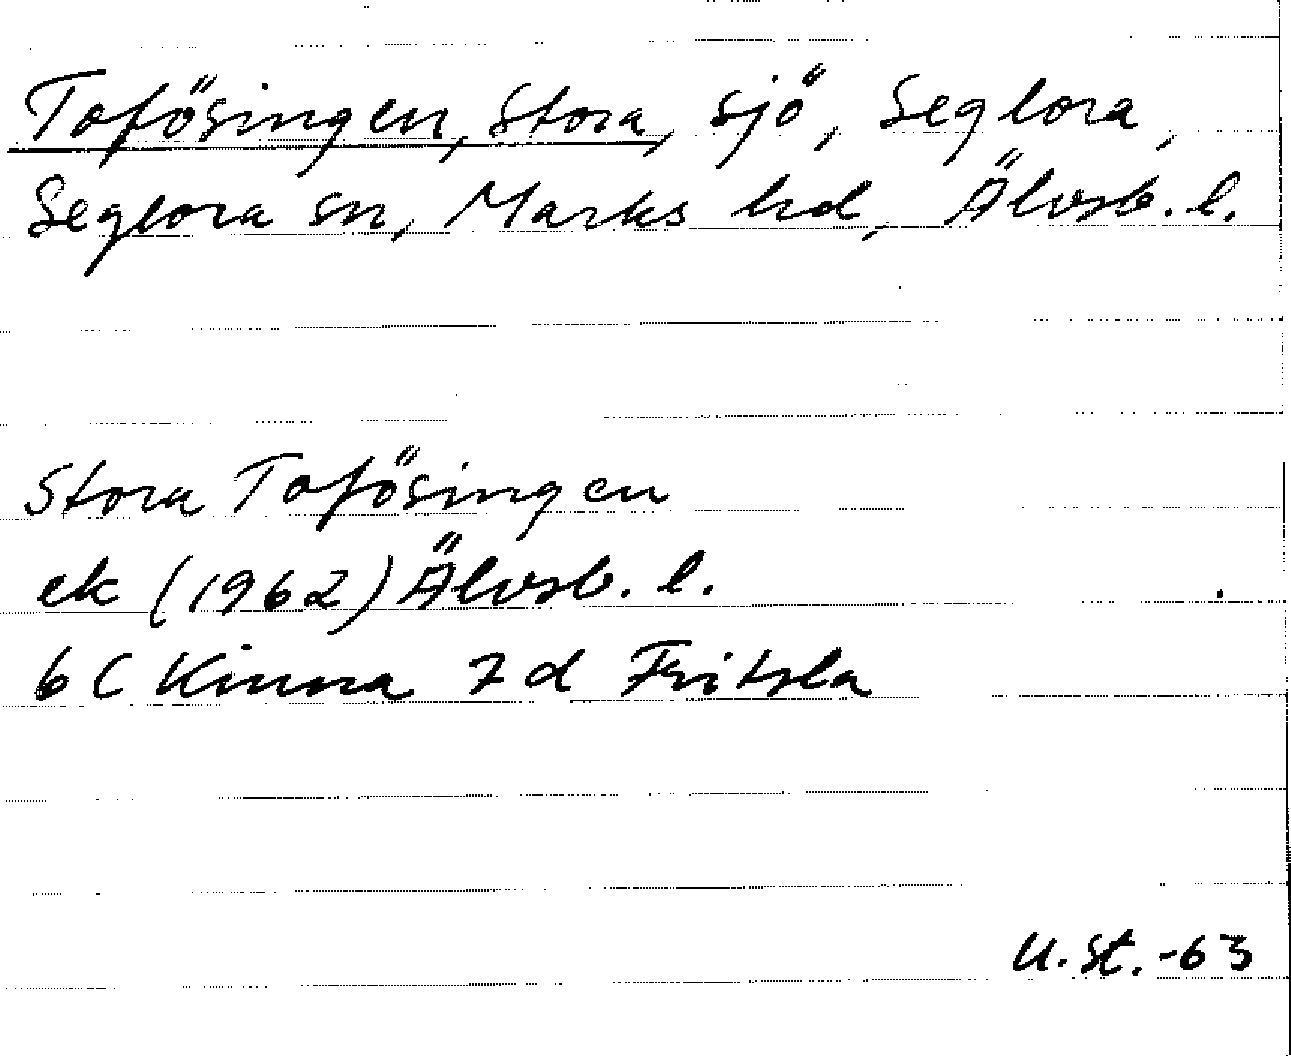 Tofösingen, Stora, sjö, Seglora,
Seglora sn, Marks hd, Älvsb. l.
Stora Tofösingen
ek (1962) Älvsb. l.
6 C Kinna 7 d Fritsla
U.St.-63